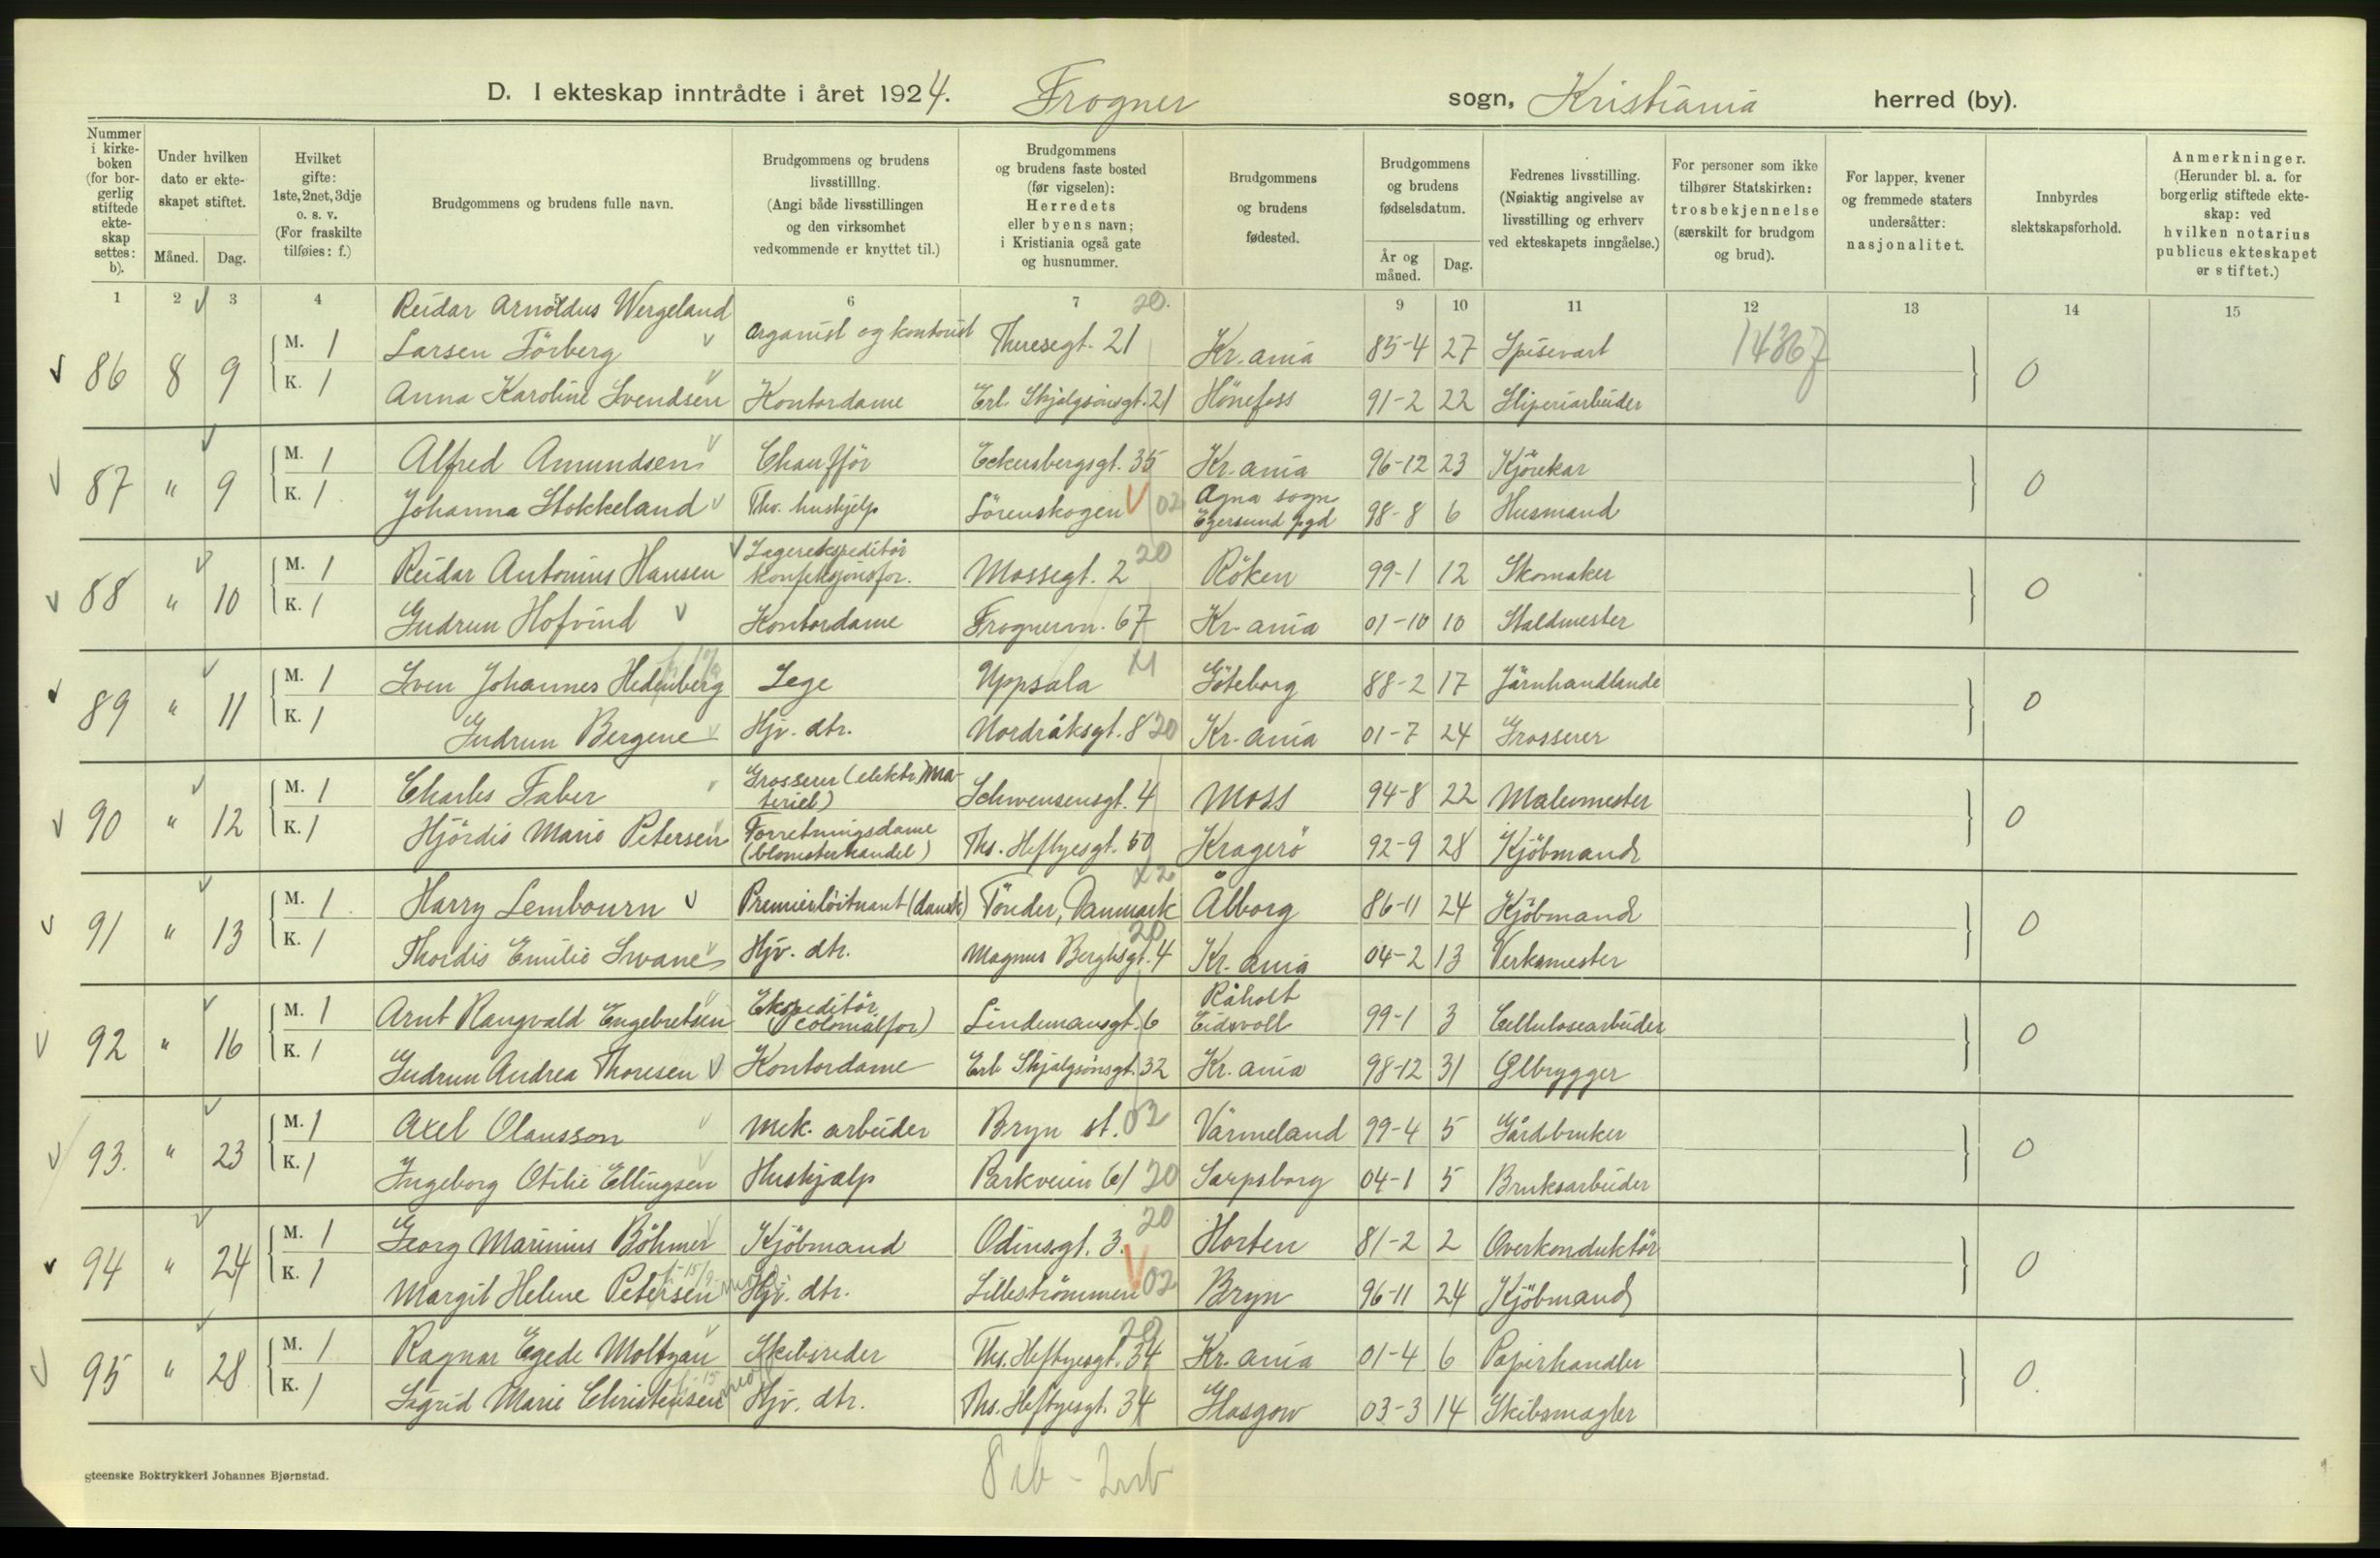 D. I ekteskap inntrådte i året 1924. Frogner sogn, Kristiania herred (by).
Nummer i kirke-boken (for bor-gerlig stiftede ekte-skap settes: b).
Under hvilken dato er ekte-skapet stiftet.
Måned. Dag.
Hvilket gifte: 1ste, 2net, 3dje o. s. v. (For fraskilte tilføies: f.)
Brudgommens og brudens fulle navn.
Brudgommens og brudens livsstilllng. (Angi både livsstillingen og den virksomhet vedkommende er knyttet til.)
Brudgommens og brudens faste bosted (før vigselen): Herredets eller byens navn; i Kristiania også gate og husnummer.
Brudgommens og brudens fødested.
Brudgommens og brudens fødselsdatum.
År og måned. Dag.
Fedrenes livsstilling. (Nøiaktig angivelse av livsstilling og erhverv ved ekteskapets inngåelse.)
For personer som ikke tilhører Statskirken: trosbekjennelse (særskilt for brudgom og brud).
For lapper, kvener og fremmede staters undersåtter: nasjonalitet.
Innbyrdes slektskapsforhold.
Anmerkninger. (Herunder bl. a. for borgerlig stiftede ekte-skap: ved hvilken notarius publicus ekteskapet er stiftet.)
1 2 3 4 5 6 7 9 10 11 12 13 14 15
Reidar Arnoldus Wergeland 20.
M. 1 Larsen Förberg Organist og kontorist Theresegt. 21 Kr.ania 85-4 27 Spisevart 14367
86 8 9 0
K. 1 Anna Karoline Svendsen Kontordame Erl. Skjalgsönsgt. 21 Hönefoss 91-2 22 Sliperiarbeider
M. 1 Alfred Amundsen Chaufför Eckersbergsgt. 35 Kr.ania 96-12 23 Kjörekar
87 " 9 0
K. 1 Johanna Stokkeland Thv. hushjelp Lörenskogen 02 Ogna sogn Egersund pgd 98-8 6 Husmand
M. 1 Reidar Antonius Hansen Lagerekspeditör konfeksjonsfor. Mossegt. 2 20 Röken 99-1 12 Skomaker
88 " 10 0
K. 1 Gudrun Hofvind Kontordame Frognervn. 67 Kr.ania 01-10 10 Staldmester
M. 1 Sven Johannes Hedenberg Lege Uppsala Göteborg 88-2 17 Järnhandlande
89 " 11 0
K. 1 Gudrun Bergene Hjv. dtr. Nordråksgt. 8 20 Kr.ania 01-7 24 Grosserer
M. 1 Charles Faber Grosserer (elektr. materiel) Schwensensgt. 4 Moss 94-8 22 Malermester
90 " 12 0
K. 1 Hjördis Marie Petersen Forretningsdame (blomsterhandel) Ths. Heftyesgt. 50 Kragerö 92-9 28 Kjöbmand
M. 1 Harry Lembourn Premierlöitnant (dansk) Tönder, Danmark Ålborg 86-11 24 Kjöbmand
91 " 13 0
K. 1 Thordis Emilie Svane Hjv. dtr. Magnus Berghsgt. 4 20 Kr.ania 04-2 13 Verksmester
M. 1 Arnt Rangvald Engebretsen Ekspeditör (colonialfor) Lindemansgt. 6 Råholt Eidsvoll 99-1 3 Cellulosearbeider
92 " 16 0
K. 1 Gudrun Andrea Thoresen Kontordame Erl. Skjalgsönsgt. 32 Kr.ania 98-12 31 Ølbrygger
M. 1 Axel Olausson Mek. arbeider Bryn st. 02 Värmeland 99-4 5 Gårdbruker
93. " 23 0
K. 1 Ingeborg Otilie Ellingsen Hushjælp Parkveien 61 20 Sarpsborg 04-1 5 Bruksarbeider
M. 1 Georg Marinius Böhmer Kjöbmand Odinsgt. 3. 20 Horten 81-2 2 Overkonduktör
94 " 24 0
K. 1 Margit Helene Petersen Hjv. dtr. Lilleströmmen 02 Bryn 96-11 24 Kjöbmand
M. 1 Ragnar Egede Moltzau Skibsreder Ths. Heftyesgt. 34 20 Kr.ania 01-4 6 Papirhandler
95 " 28 0.
K. 1 Sigrid Marie Christensen Hjv. dtr. Ths. Heftyesgt. 34 Glasgow 03-3 14 Skibsmægler
gteenske Boktrykkeri Johannes Bjørnstad.